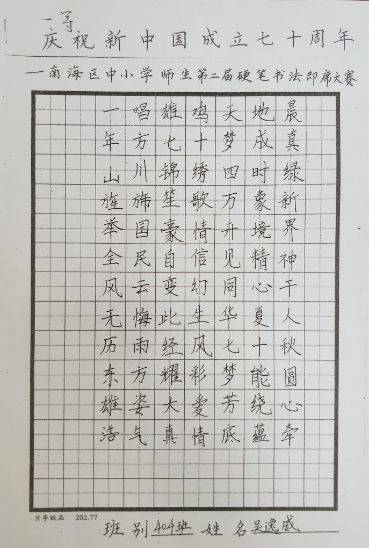 一等
庆祝新中国成立七十周年
—南海区中小学师生第二届硬笔书法即席大赛
一唱雄鸡天地晨
年方七十梦成真
山川锦绣四时绿
旌旆笙歌万象新
举国豪情升境界
全民自信见精神
风云变幻同心干
无悔此生华夏人
历雨经风七十秋
东方耀彩梦能圆
雄姿大爱芳绕心
浩气真情底蕴牵
202.77
班别404班 姓名吴逸威